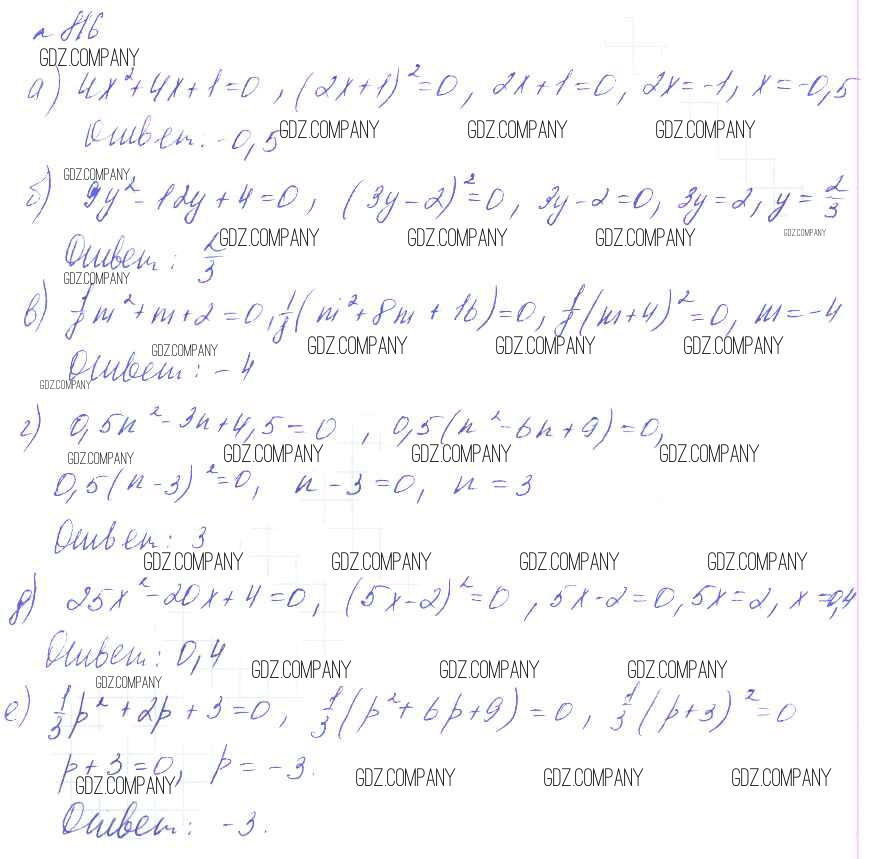 № 816
GDZ.COMPANY
а) 4x²+4x+1=0, (2x+1)²=0, 2x+1=0, 2x=-1, x=-0,5
Ответ: -0,5 GDZ.COMPANY GDZ.COMPANY GDZ.COMPANY
GDZ.COMPANY
б) 9y²-12y+4=0, (3y-2)²=0, 3y-2=0, 3y=2, y=2/3
Ответ: 2/3 GDZ.COMPANY GDZ.COMPANY GDZ.COMPANY GDZ.COMPANY
GDZ.COMPANY
в) 1/8m²+m+2=0, 1/8(m²+8m+16)=0, 1/8(m+4)²=0, m=-4
GDZ.COMPANY GDZ.COMPANY GDZ.COMPANY GDZ.COMPANY
Ответ: -4
GDZ.COMPANY
г) 0,5n²-3n+4,5=0, 0,5(n²-6n+9)=0,
GDZ.COMPANY GDZ.COMPANY GDZ.COMPANY GDZ.COMPANY
0,5(n-3)²=0, n-3=0, n=3
Ответ: 3
GDZ.COMPANY GDZ.COMPANY GDZ.COMPANY GDZ.COMPANY
д) 25x²-20x+4=0, (5x-2)²=0, 5x-2=0, 5x=2, x=0,4
Ответ: 0,4
GDZ.COMPANY GDZ.COMPANY GDZ.COMPANY
GDZ.COMPANY
е) 1/3p²+2p+3=0, 1/3(p²+6p+9)=0, 1/3(p+3)²=0
p+3=0, p=-3.
GDZ.COMPANY GDZ.COMPANY GDZ.COMPANY GDZ.COMPANY
Ответ: -3.